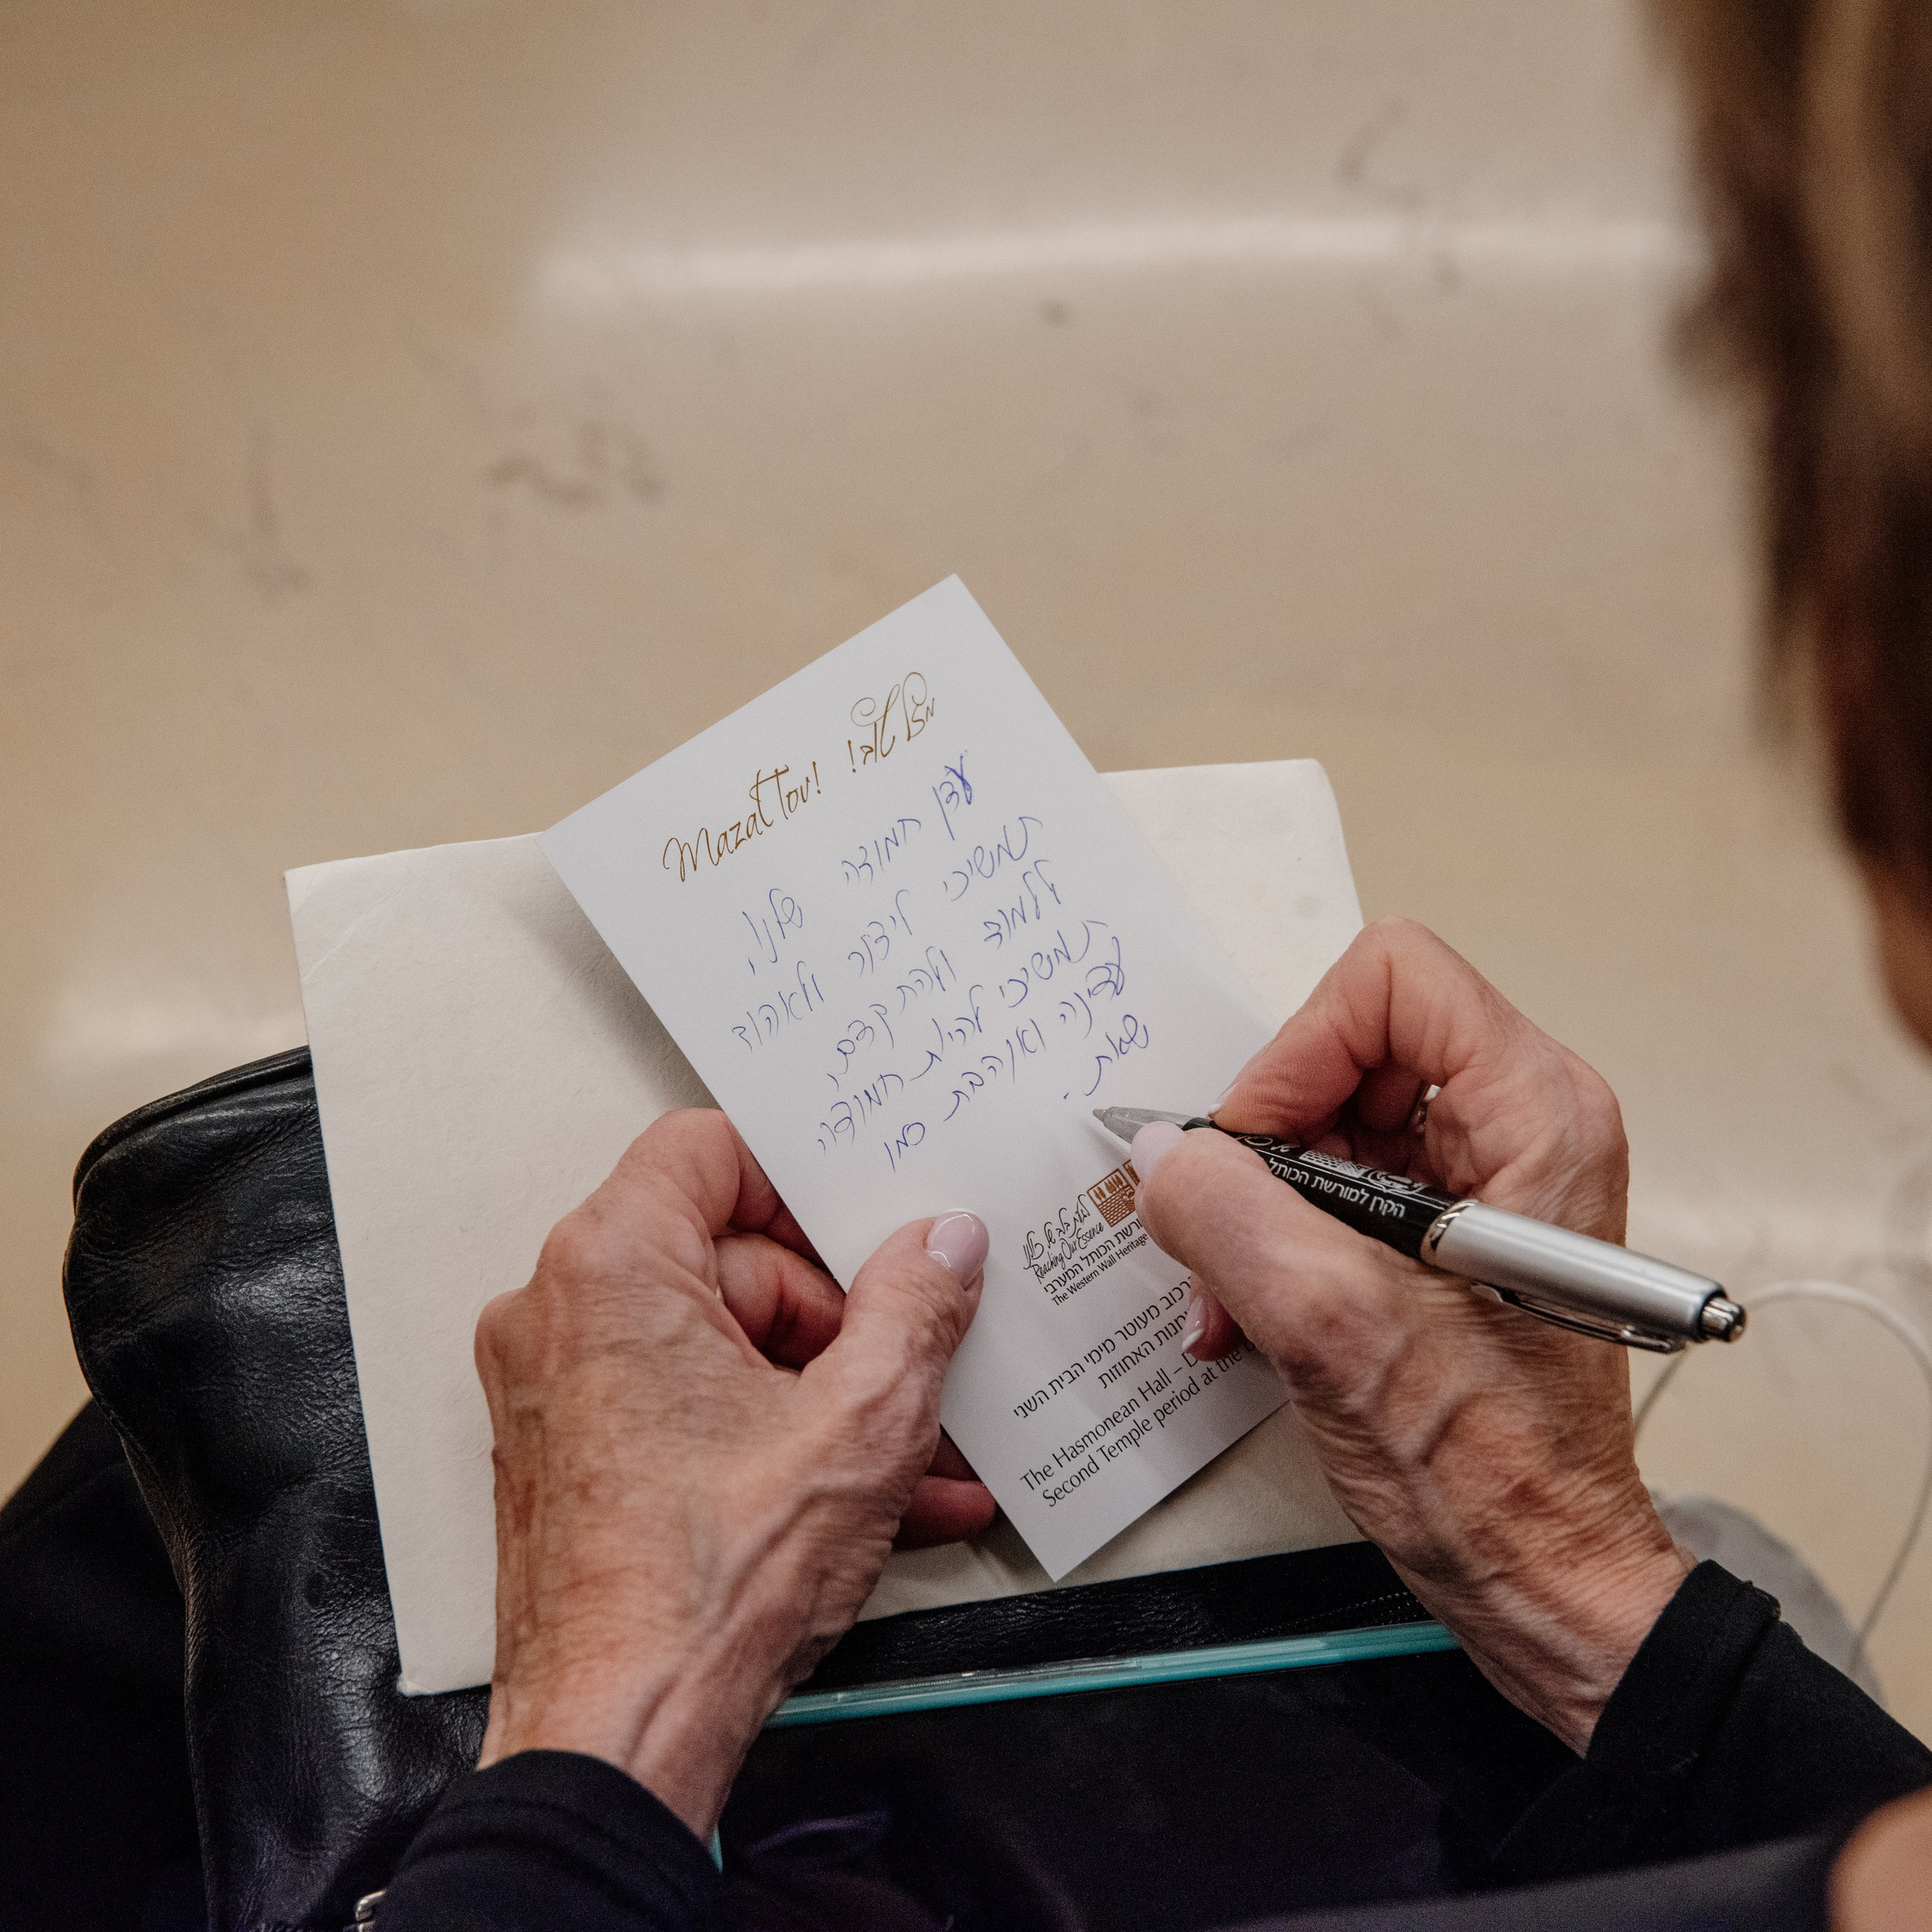 Mazal Tov! מזל טוב!
עדן חמודה שלנו,
תמשיכי לצדור ולאהוד
ללמוד ולהתקדם,
תמשיכי להיות חמודה,
עדינה ואוהבת כמו
שאת.
ללכת בלב של כולנו
Reaching Our Essence
מורשת הכותל המערבי
The Western Wall Heritage
מעוטר מימי הבית השני
האחוזות
The Hasmonean Hall –
Second Temple period at the
הקרן למורשת הכותל